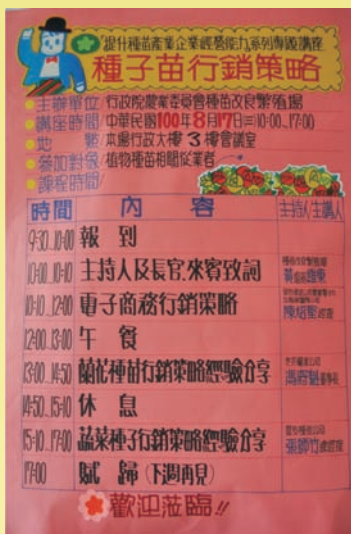 提升種苗產業企業經營能力系列專題講座
種子苗行銷策略
主辦單位/行政院農業委員會種苗改良繁殖場
講座時間/中華民國100年8月17日(三)10:00..17:00
地點/本場行政大樓3樓會議室
參加對象/植物種苗相關從業者
課程時間/
時間 內容 主持人/主講人
9:30..10:00 報到
10:00..10:10 主持人及長官.來賓致詞
10:10..12:00 電子商務行銷策略
12:00..13:00 午餐
13:00..14:50 蘭花種苗行銷策略經驗分享
14:50..15:10 休息
15:10..17:00 蔬菜種子行銷策略經驗分享
17:00 賦歸(下週再見)
歡迎蒞臨!!